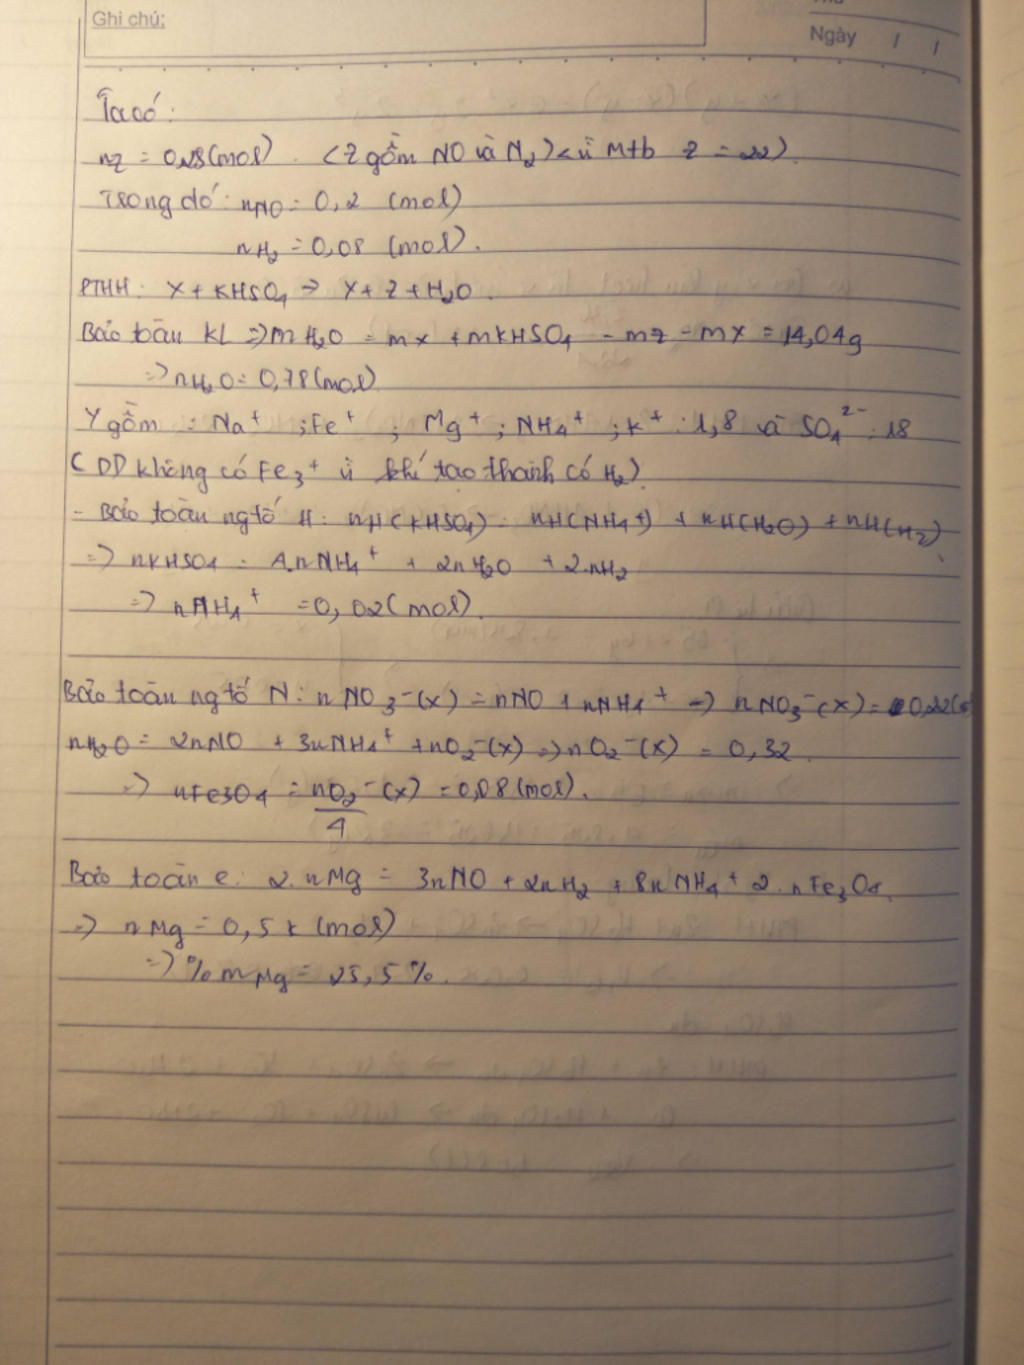 Ghi chú:
Thứ
Ngày / /
Ta có:
nZ = 0,28 (mol). (Z gồm NO và H2) (vì Mtb Z = 22)
Trong đó: nNO = 0,2 (mol)
nH2 = 0,08 (mol).
PTHH: X + KHSO4 → Y + Z + H2O.
Bảo toàn KL => mH2O = mX + mKHSO4 - mZ - mX = 14,04g
=> nH2O = 0,78 (mol)
Y gồm: Na+ ; Fe+ ; Mg+ ; NH4+ ; K+ : 1,8 và SO4 2- : 18
( DD không có Fe3+ vì khí tạo thành có H2).
- Bảo toàn ng tố H: nH(KHSO4) = nH(NH4+) + nH(H2O) + nH(H2)
=> nKHSO4 = 4.nNH4+ + 2nH2O + 2.nH2
=> nNH4+ = 0,02 (mol).
Bảo toàn ng tố N: nNO3-(X) = nNO + nNH4+ => nNO3-(X) = 0,22
nH2O = 2nNO + 3nNH4+ + nO2-(X) => nO2-(X) = 0,32
=> nFe3O4 = nO2-(X)/4 = 0,08 (mol).
Bảo toàn e: 2.nMg = 3nNO + 2nH2 + 8nNH4+ 2.nFe3O4
=> nMg = 0,5 (mol)
=> %mMg = 25,5%.